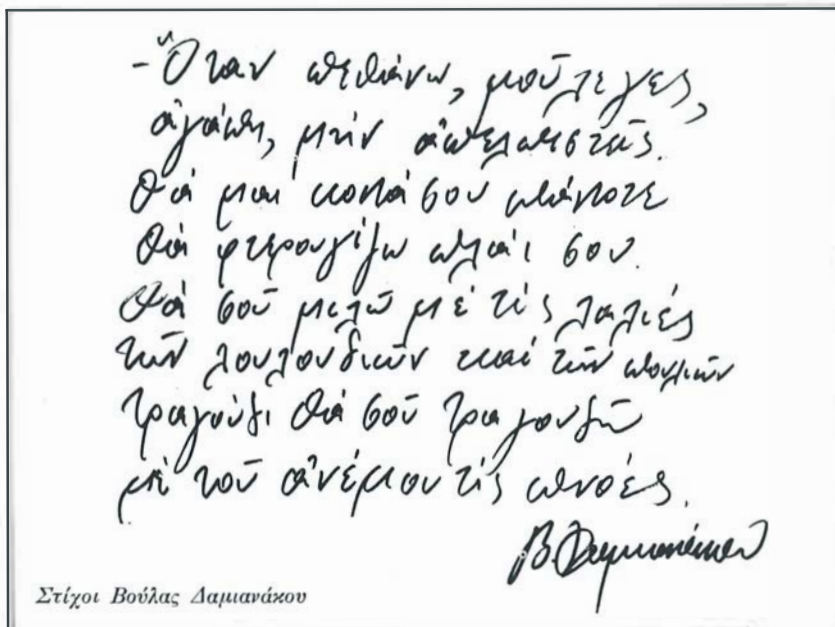 -Ὅταν πεθάνω, μοὔλεγες,
ἀγάπη, μήν ἀπελπιστεῖς.
Θά μαι κοντά σου πάντοτε
Θά φτερουγίζω πλάι σου.
Θά σοῦ μιλῶ μέ τίς λαλιές
τῶν λουλουδιῶν καί τῶν πουλιῶν
τραγούδι θά σοῦ τραγουδῶ
μέ τοῦ ἀνέμου τίς πνοές.
Β. Δαμιανάκου
Στίχοι Βούλας Δαμιανάκου